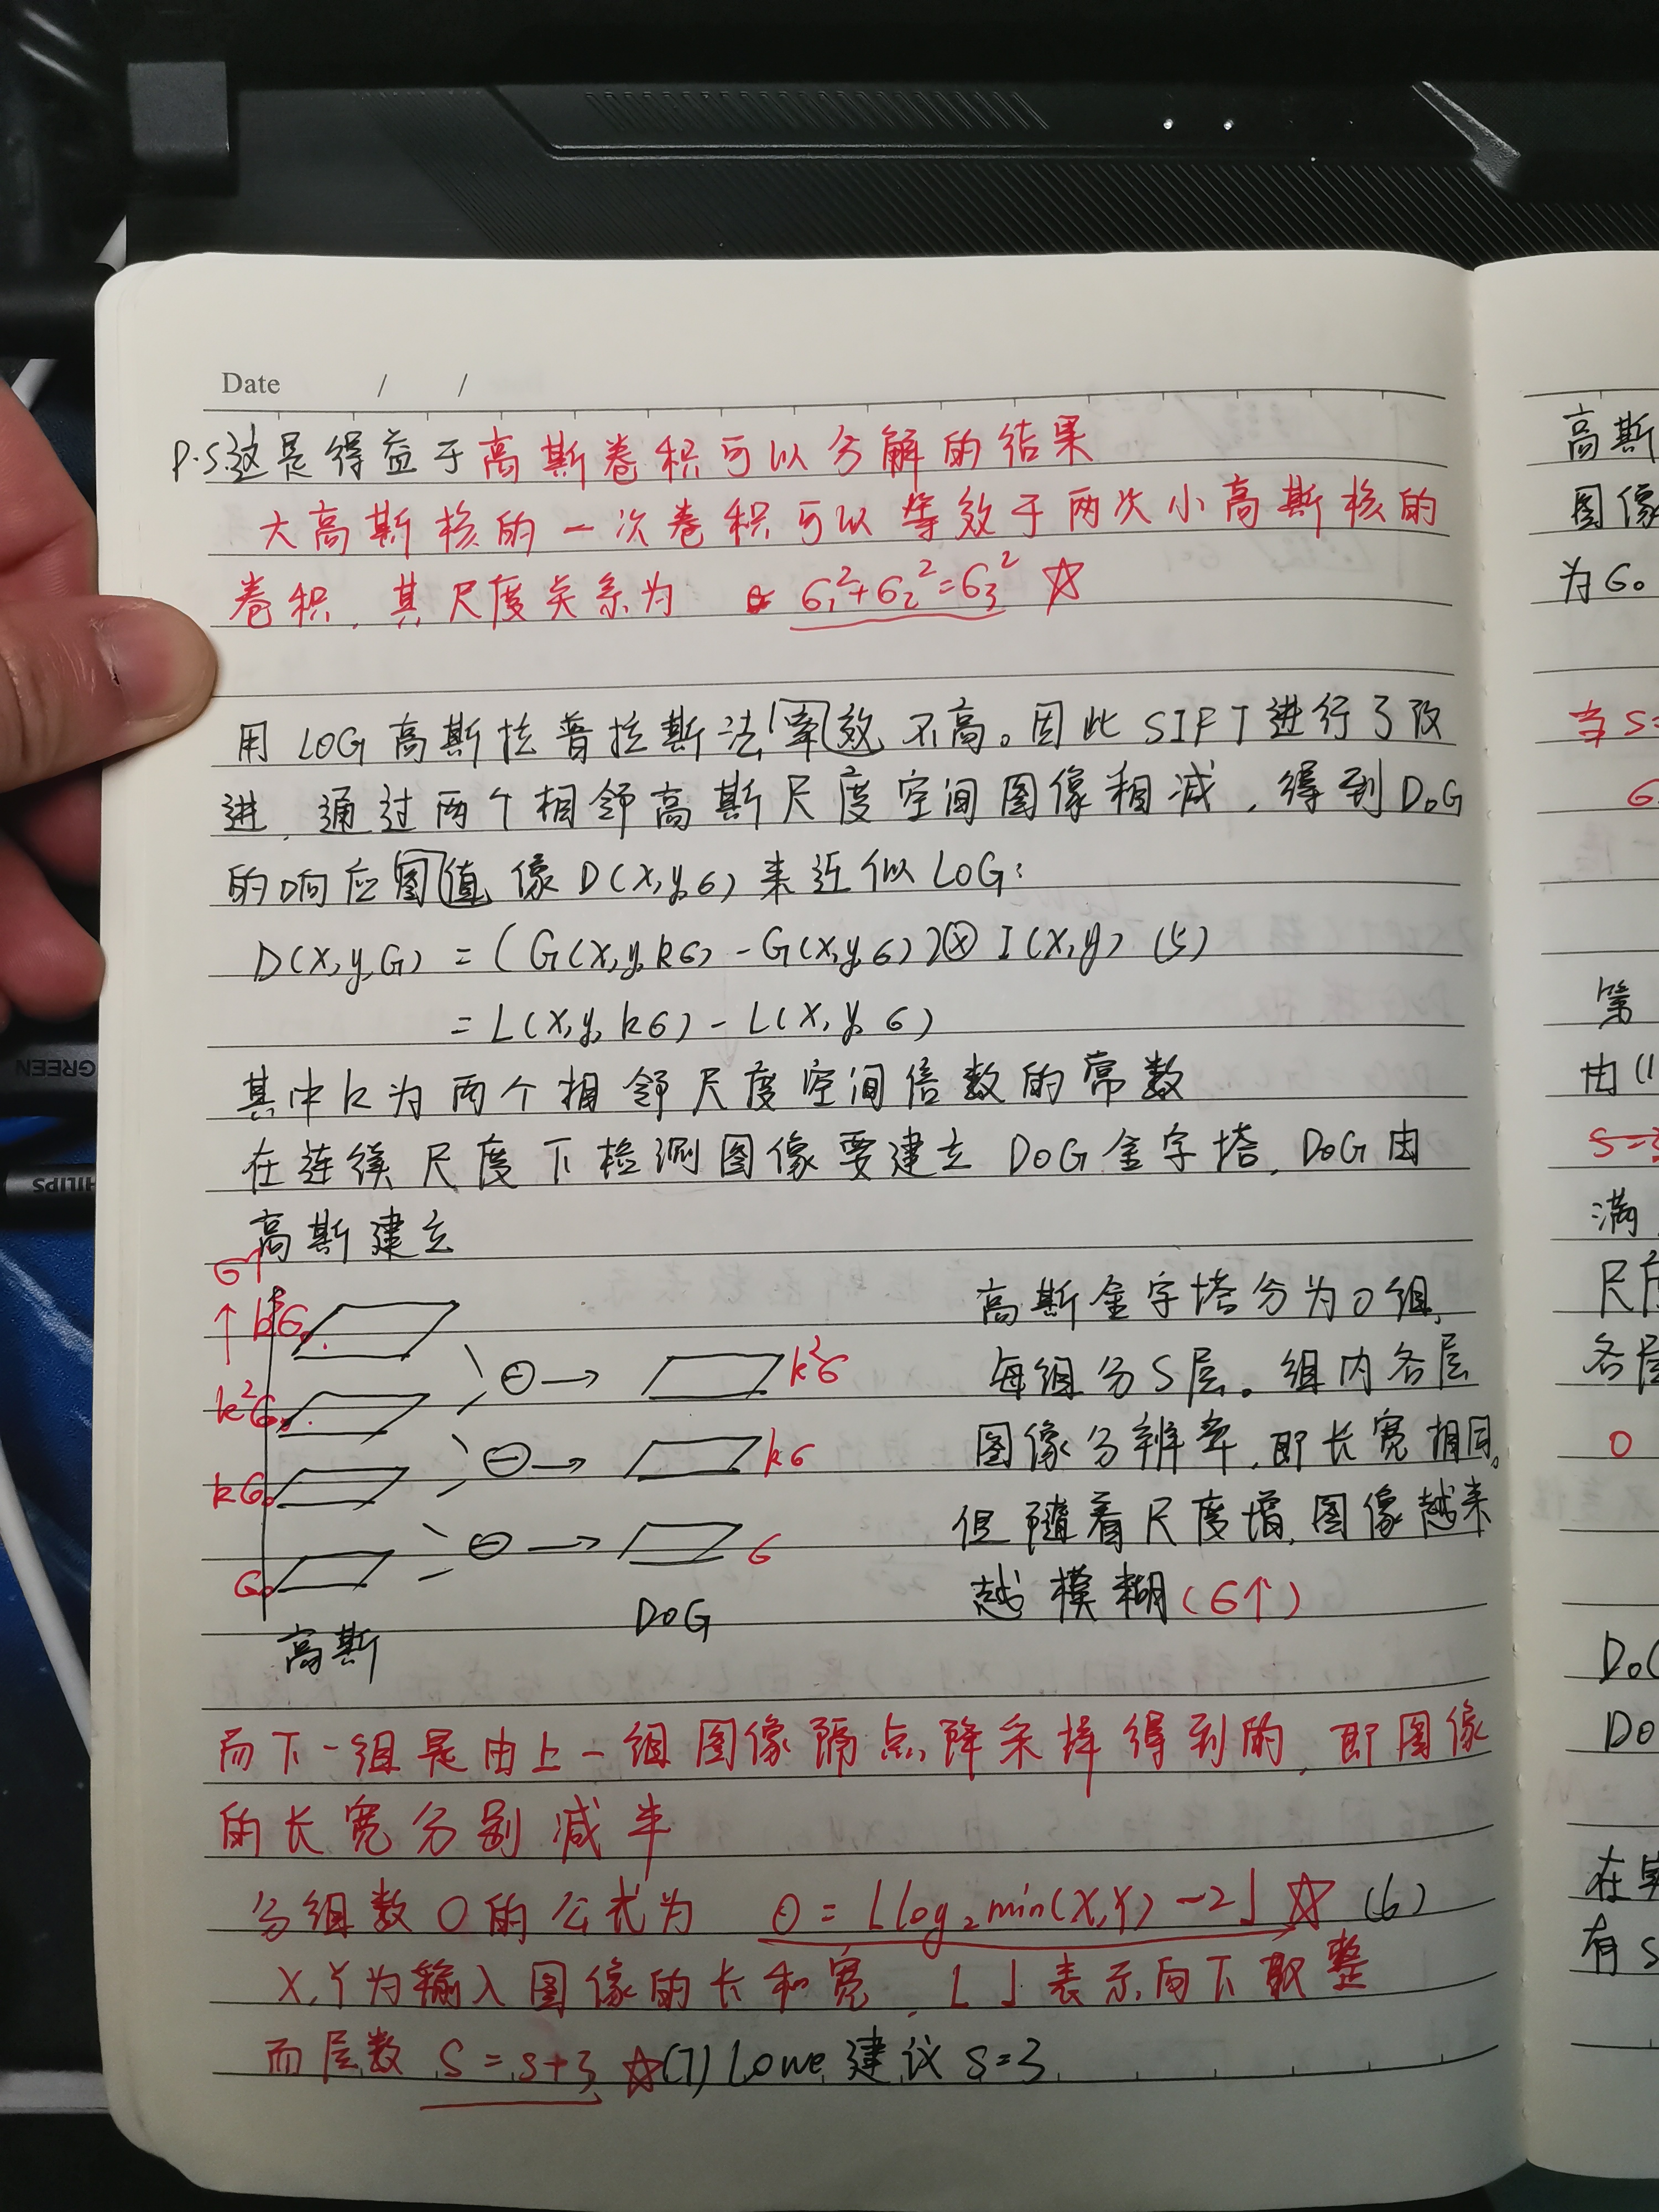 Date / /
P.S 这是得益于高斯卷积可以分解的结果
大高斯核的一次卷积可以等效于两次小高斯核的
卷积,其尺度关系为 σ₁²+σ₂²=σ₃² ☆
用LOG高斯拉普拉斯法率效不高。因此SIFT进行了改
进,通过两个相邻高斯尺度空间图像相减,得到DoG
的响应图值像D(x,y,σ)来近似LOG:
D(x,y,σ) = (G(x,y,kσ) - G(x,y,σ)) ⊗ I(x,y) (5)
= L(x,y,kσ) - L(x,y,σ)
其中k为两个相邻尺度空间倍数的常数
在连续尺度下检测图像要建立DoG金字塔,DoG由
高斯建立
σ↑
↑ k³σ₀
k²σ₀
kσ₀
σ₀
⊖→ k²σ
⊖→ kσ
⊖→ σ
高斯
DOG
高斯金字塔分为O组,
每组分S层。组内各层
图像分辨率,即长宽相同。
但随着尺度增,图像越来
越模糊(σ↑)
而下一组是由上一组图像隔点降采样得到的,即图像
的长宽分别减半
分组数O的公式为 O = ⌊log₂min(X,Y) -2⌋ ☆ (6)
X,Y为输入图像的长和宽,⌊ ⌋表示向下取整
而层数 S = s+3 ☆(7) Lowe 建议 s=3
高斯
图像
为σ₀
当S=
第
由(1
S=3
满
尺度
各层
O
DoG
DO
在实
有S
GREEN
PHILIPS